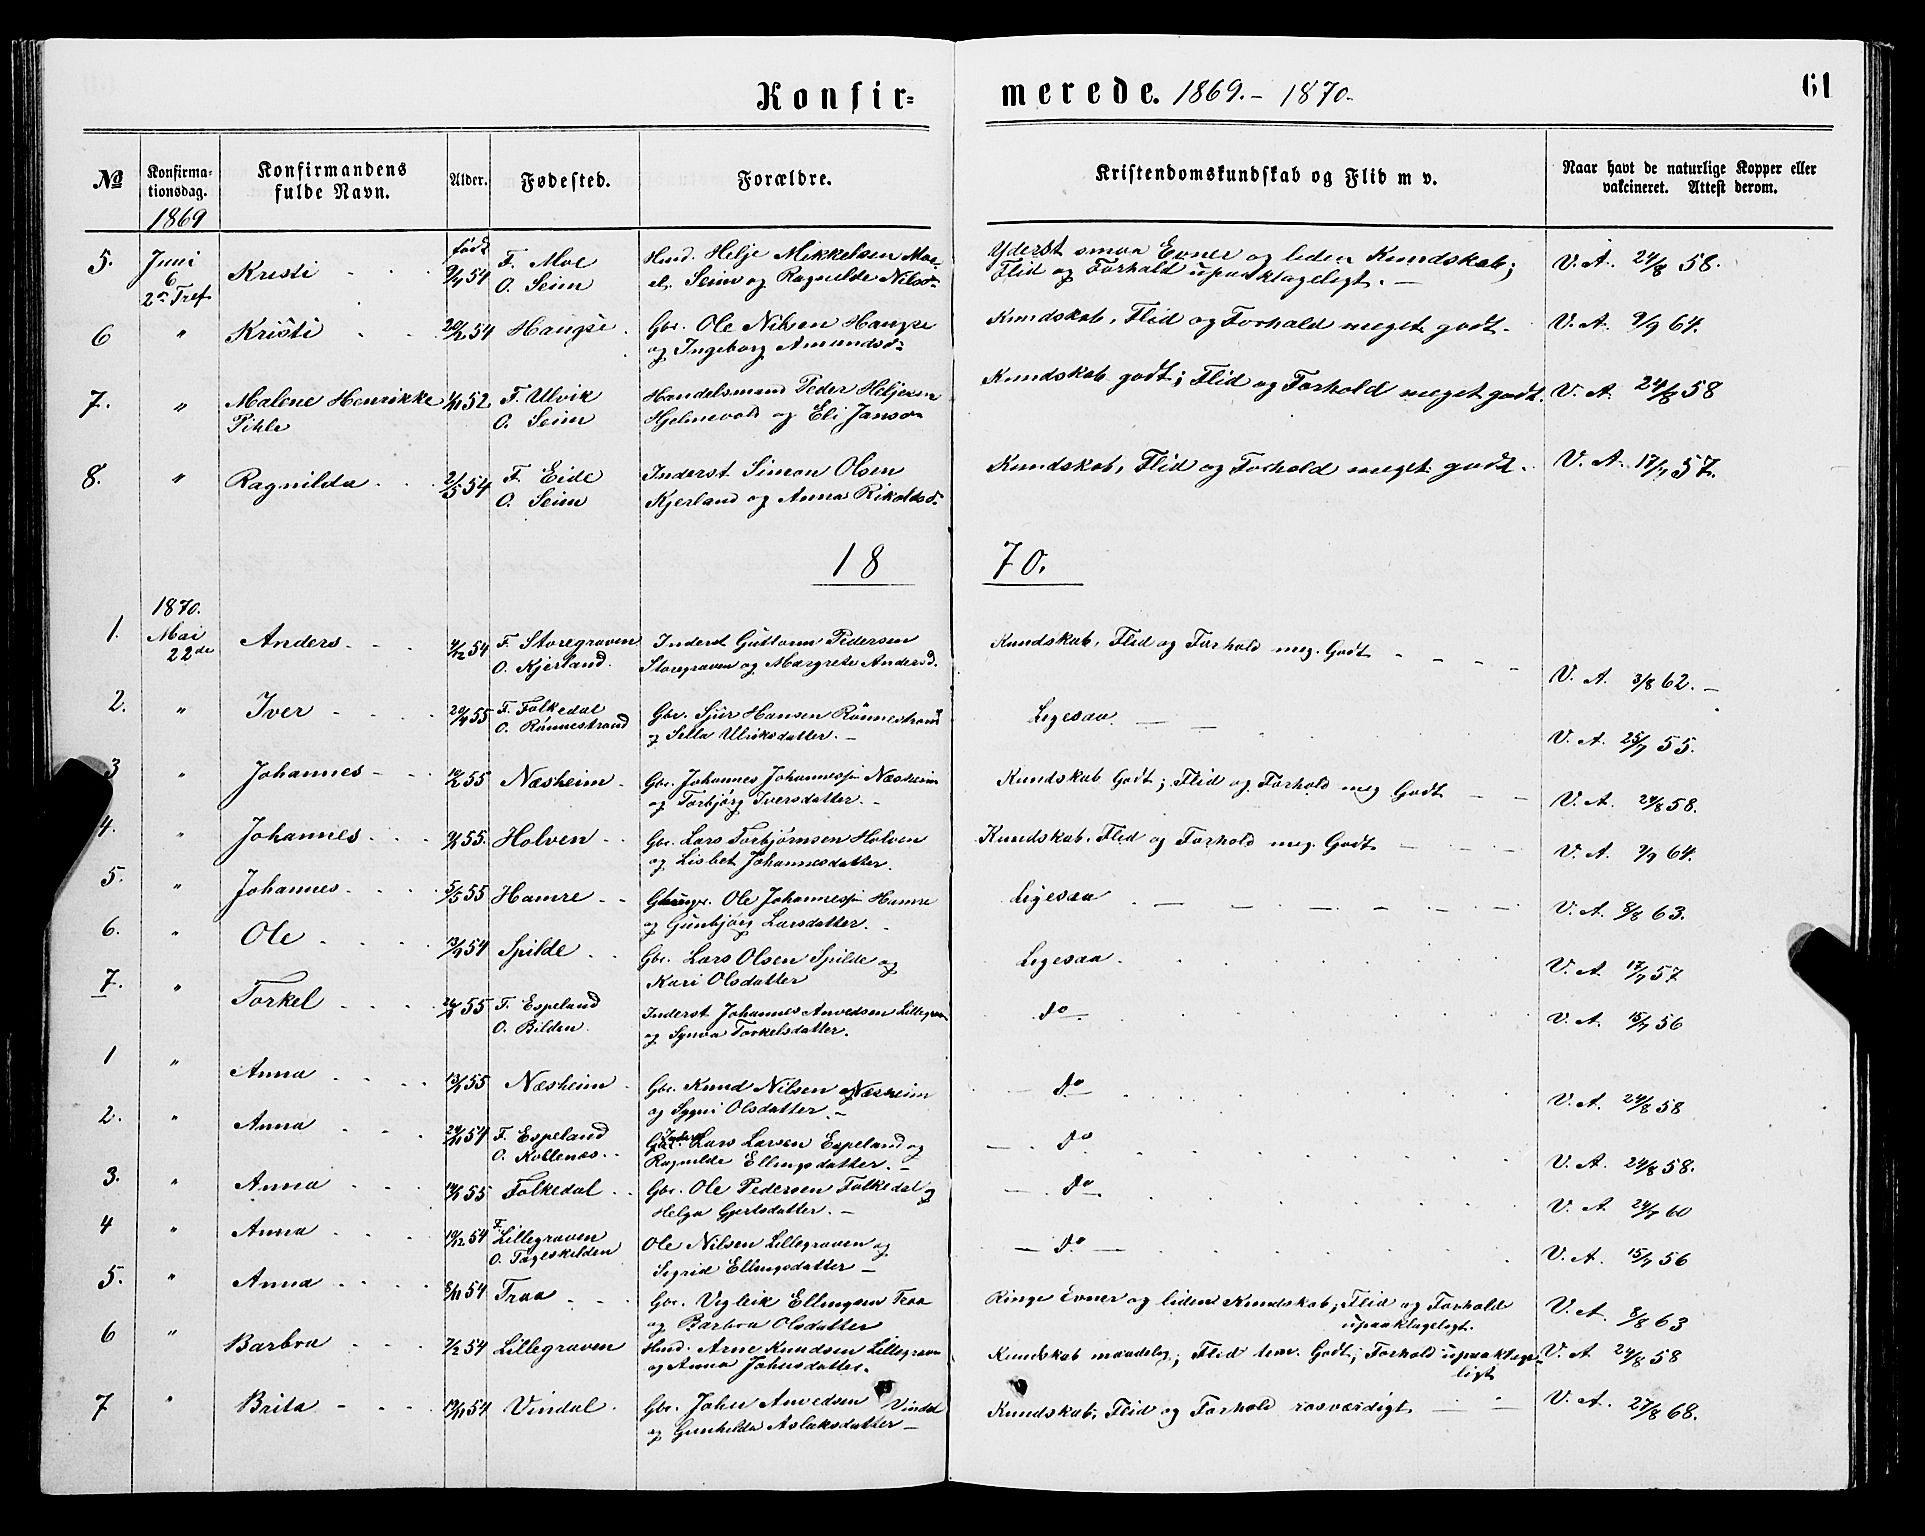 Konfir= merede. 1869. – 1870. 61
No Konfirma-tionsdag. Konfirmandens fulde Navn. Alder. Fødested. Forældre. Kristendomskundskab og Flid m v. Naar havt de naturlige Kopper eller vakcineret. Attest derom.
1869
5. Juni 6 2den Tref Kristi født 54 F. Moe Hmd. Helje Mikkelsen Moe Yderst smaa Evner og liden Kundskab; V. A. 24/8 58.
O. Seim el. Seim og Ragnilda Nilsd. Flid og Forhold upaaklageligt. –
6 " Kristi 54 Haugse Gbr. Ole Nilsen Haugse Kundskab, Flid og Forhold meget godt. V. A. 9/9 64.
og Ingeborg Amundsd.
7. " Malene Henrikke 52 F. Ulvik Handelsmand Peder Heljesen Kundskab godt; Flid og Forhold meget godt. V. A. 24/8 58
Pihle O. Seim Hjelmevold og Eli Jansd.
8. " Ragnilda 2/5 54 F. Eide Inderst Simon Olsen Kundskab, Flid og Forhold meget godt. V. A. 17/7 57.
O. Seim Kjerland og Anna Rikoldsd.
18 70.
1870.
1. Mai 22de Anders 54 F. Storegraven Inderst Guttorm Pedersen Kundskab, Flid og Forhold meg. Godt V. A. 3/8 62. –
O. Kjerland. Storegraven og Margreta Andersd.
2. " Iver 55 F. Folkedal Gbr. Sjur Hansen Rönnestrand Ligesaa V. A. 25/7 55.
O. Rönnestrand og Sella Ulriksdatter. –
3 " Johannes 55 Næsheim Gbr. Johannes Johannessen Næsheim Kundskab Godt; Flid og Forhold meg Godt V. A. 24/8 58.
og Torbjørg Iversdatter. –
4. " Johannes 55. Holven Gbr. Lars Torbjørnsen Holven Kundskab, Flid og Forhold meg. Godt V. A. 9/9 64.
og Lisbet Johannesdatter.
5. " Johannes 5/5 55 Hamre Ole Johannessen Hamre Ligesaa V. A. 8/8 63.
og Gunbjörg Larsdatter.
6. " Ole 54 Spilde Gbr. Lars Olsen Spilde og Ligesaa V. A. 17/7 57
Kari Olsdatter
7. " Torkel 55 F. Espeland Inderst Johannes Anvedsen Lillegraven do V. A. 15/7 56
O. Bilden og Synva Torkelsdatter.
1 " Anna 55 Næsheim Gbr. Knud Nilsen Næsheim do V. A. 24/8 58
og Sygni Olsdatter –
2. " Anna 54 F. Espeland Inderst Lars Larsen Espeland og do V. A. 24/8 58.
O. Kollenæs. Ragnilda Ellingsdatter. –
3. " Anna 55 Folkedal Gbr. Ole Pedersen Folkedal og do V. A. 24/7 60
Helga Gjertsdatter. –
4 " Anna 19/12 54 F. Lillegraven Ole Nilsen Lillegraven og do V. A. 15/7 56
O. Sigrid Ellingsdatter –
5. " Anna 8/11 54 Traa Gbr. Vigleik Ellingsen Traa Ringe Evner og liden Kundskab; Flid og Forhold V. A. 8/8 63
og Barbra Olsdatter upaaklageligt.
6 " Barbra 54 Lillegraven Hmd. Arne Knudsen Lillegraven Kundskab maadelig; Flid tem. Godt; Forhold upaaklage- V. A. 24/8 58
og Anna Johnsdatter. ligt
7 " Brita 54 Vindal Gbr. John Anvedsen Vindal Kundskab, Flid og Forhold rosværdigt V. A. 27/8 68.
og Gunhilda Aslaksdatter –